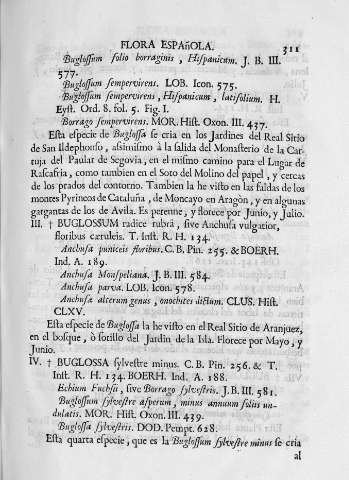 FLORA ESPAñOLA. 311
Buglossum folio borraginis, Hispanicum. J. B. III.
577.
Buglossum sempervirens. LOB. Icon. 575.
Buglossum sempervirens, Hispanicum, latifolium. H.
Eyst. Ord. 8. fol. 5. Fig. I.
Borrago sempervirens. MOR. Hist. Oxon. III. 437.
Esta especie de Buglossa se cria en los Jardines del Real Sitio
de San Ildephonso, asimismo à la salida del Monasterio de la Car-
tuja del Paular de Segovia, en el mismo camino para el Lugar de
Rascafria, como tambien en el Soto del Molino del papel, y cercas
de los prados del contorno. Tambien la he visto en las faldas de los
montes Pyrineos de Cataluña, de Moncayo en Aragòn, y en algunas
gargantas de los de Avila. Es perenne, y florece por Junio, y Julio.
III. † BUGLOSSUM radice rubrâ, sive Anchusa vulgatior,
floribus cæruleis. T. Inst. R. H. 134.
Anchusa puniceis floribus. C. B. Pin. 255. & BOERH.
Ind. A. 189.
Anchusa Monspeliana. J. B. III. 584.
Anchusa parva. LOB. Icon. 578.
Anchusæ alterum genus, onochites dictum. CLUS. Hist.
CLXV.
Esta especie de Buglossa la he visto en el Real Sitio de Aranjuez,
en el bosque, ò sotillo del Jardin de la Isla. Florece por Mayo, y
Junio.
IV. † BUGLOSSA sylvestre minus. C. B. Pin. 256. & T.
Inst. R. H. 134. BOERH. Ind. A. 188.
Echium Fuchsii, sive Borrago sylvestris. J. B. III. 581.
Buglossum sylvestre asperum, minus annuum foliis un-
dulatis. MOR. Hist. Oxon. III. 439.
Buglossa sylvestris. DOD. Pempt. 628.
Esta quarta especie, que es la Buglossum sylvestre minus se cria
al